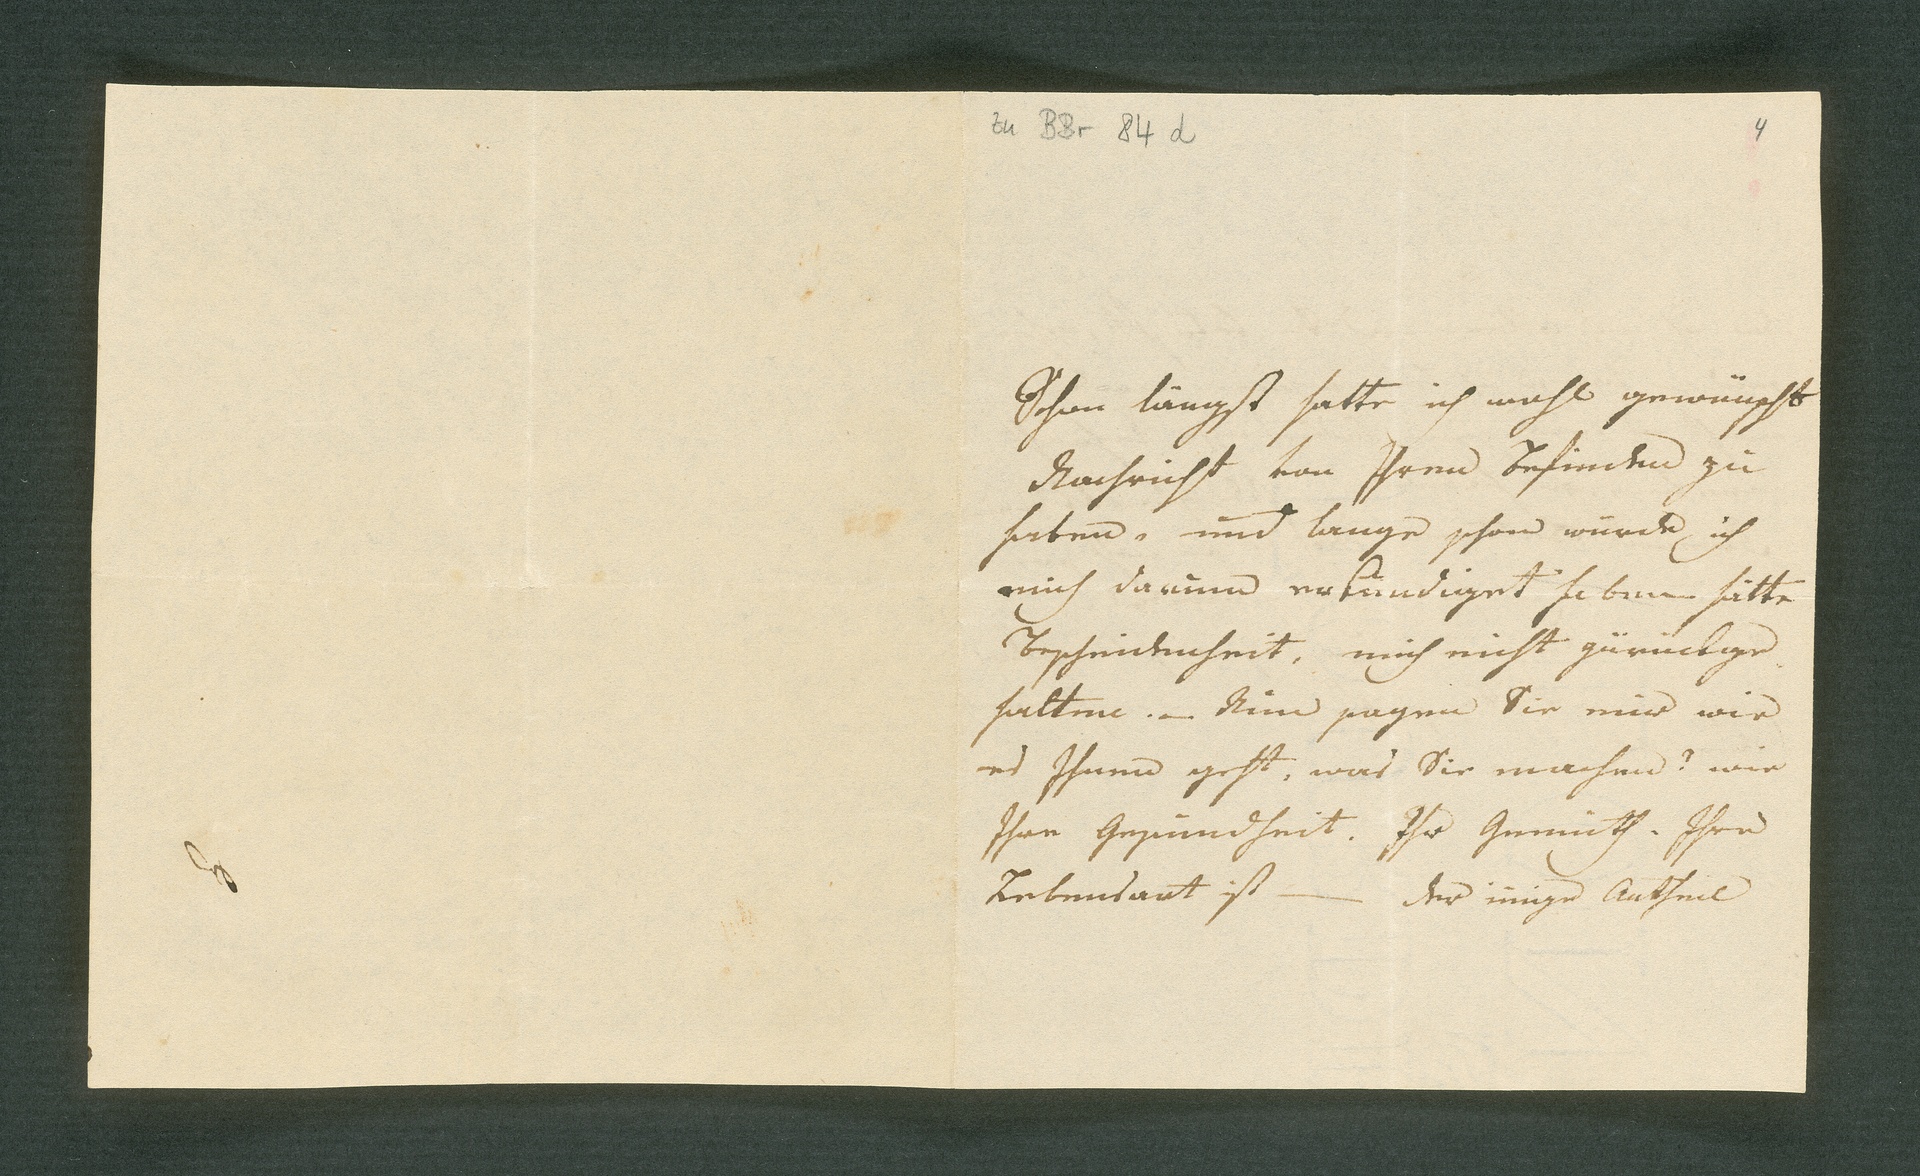 zu BBr 84 d
4
Schon längst hatte ich wohl gewünscht
Nachricht von Ihren Befinden zu
haben, und lange schon würde ich
mich darum erkundiget haben hätte
Bescheidenheit, mich nicht zurückge
halten. – Nun sagen Sie mir wie
es Ihnen geht, was Sie machen? wie
Ihre Gesundheit. Ihr Gemüth. Ihre
Lebensart ist — der innige Antheil